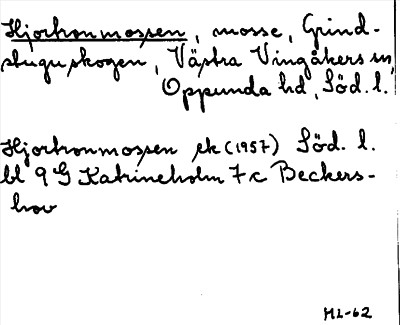 Hjortronmossen, mosse, Grind-
stuguskogen, Västra Vingåkers sn,
Oppunda hd, Söd. l.
Hjortronmossen ek (1957) Söd. l.
bl 9 G Katrineholm 7 c Beckers-
hov
ML-62